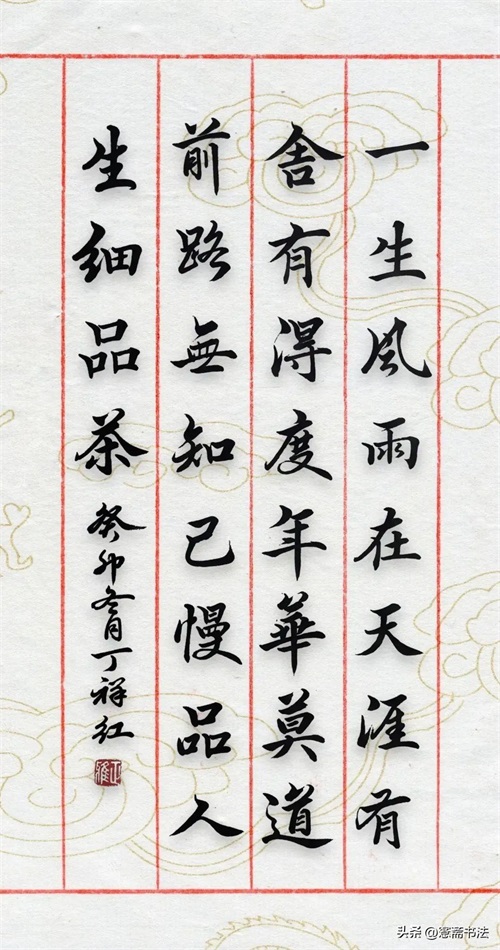 一生風雨在天涯有
舍有得度年華莫道
前路無知己慢品人
生细品茶
癸卯冬月丁祥红
头条@憲斋书法